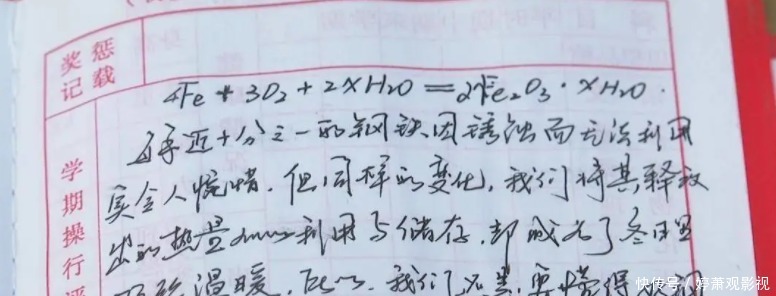 奖惩
记载
4Fe + 3O₂ + 2XH₂O = 2Fe₂O₃·XH₂O.
每年近十分之一的钢铁因锈蚀而无法利用
实令人惋惜.但同样的变化,我们将其释放
出的热量加以利用与储存,却成为了冬日里
温暖.所以,我们
要懂得
学期操行评
快传号/婷萧观影视